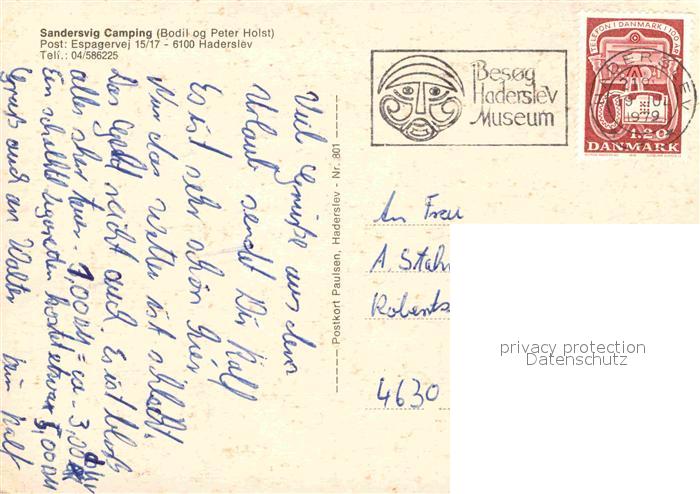 Sandersvig Camping (Bodil og Peter Holst)
Post: Espagervej 15/17 - 6100 Haderslev
Telf.: 04/586225
Besøg
Haderslev
Museum
TELEFON I DANMARK I 100 ÅR
HADERSLEV
1979
1.20
DANMARK
Viel Grüße aus dem
Urlaub sendet Dir Ralf
Es ist sehr schön hier
Nur das Wetter ist schlecht.
Das Geld reicht auch. Es ist bloß
alles sehr teuer. 1,00 DM = ca. 3,00
Ein kostet etwa 5,00 DM
Gruß auch an Walter
Ralf
Postkort Paulsen, Haderslev - Nr. 801
An Frau
A. Stah
Roberts
4630
privacy protection
Datenschutz